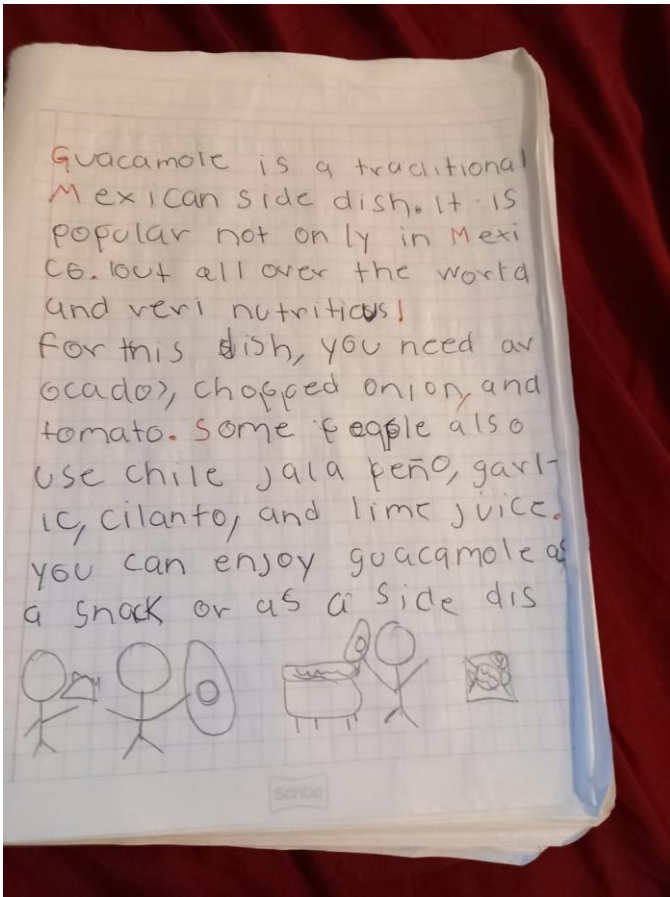 Guacamole is a traditional
Mexican side dish. It is
popular not only in Mexi
co. but all over the world
and veri nutritious!
for this dish, you need av
ocados, chopped onion, and
tomato. Some people also
use chile jalapeño, garl-
ic, cilanto, and lime juice.
you can enjoy guacamole as
a snack or as a side dis
Scribe